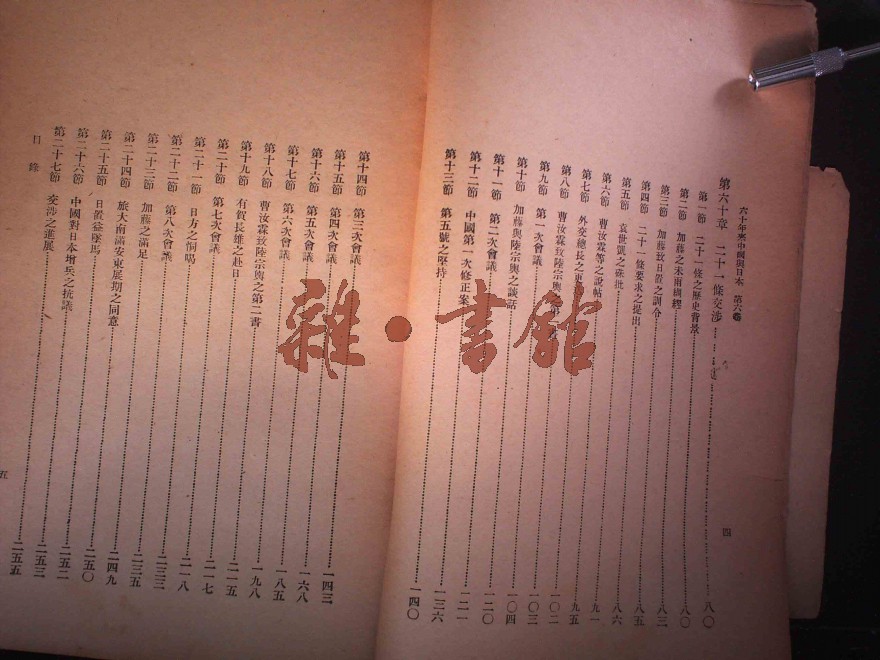 六十年來中國與日本 第六卷 四
第六十章 二十一條交涉 八〇
第一節 二十一條之歷史背景 八〇
第二節 加藤之未雨綢繆 八三
第三節 加藤致日置之訓令 八五
第四節 二十一條要求之提出 八六
第五節 袁世凱之硃批 九一
第六節 曹汝霖等之說帖 九五
第七節 外交總長之更 一〇二
第八節 曹汝霖致陸宗輿之第 一〇三
第九節 第一次會議 一〇四
第十節 加藤與陸宗輿之談話 一二〇
第十一節 第二次會議 一二一
第十二節 中國第一次修正案 一三六
第十三節 第五號之堅持 一四〇
第十四節 第三次會議 一四三
第十五節 第四次會議 一六八
第十六節 第五次會議 一八五
第十七節 第六次會議 一九八
第十八節 曹汝霖致陸宗輿之第二書 二一五
第十九節 有賀長雄之赴日 二一七
第二十節 第七次會議 二一八
第二十一節 日方之恫喝 二三三
第二十二節 第八次會議 二三五
第二十三節 加藤之滿足 二四九
第二十四節 旅大南滿安東展期之同意 二五〇
第二十五節 日置益墜馬 二五二
第二十六節 中國對日本增兵之抗議 二五三
第二十七節 交涉之進展 二五五
目錄 五
雜·書館